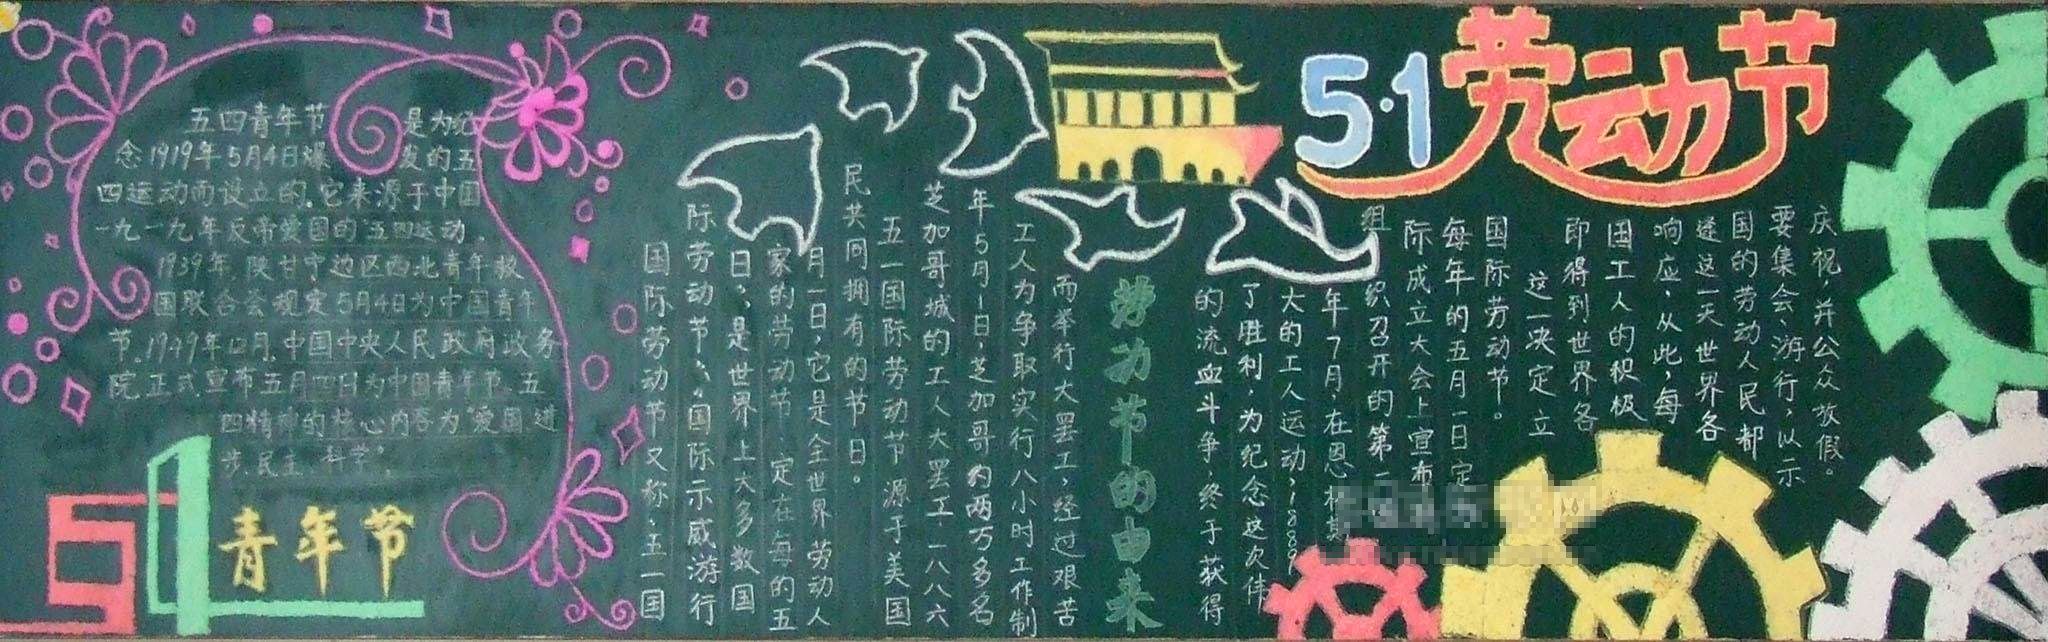 五四青年节 是为纪
念1919年5月4日爆 发的五
四运动而设立的,它来源于中国
一九一九年反帝爱国的"五四运动。
1939年,陕甘宁边区西北青年救
国联合会规定5月4日为中国青年
节。1949年12月,中国中央人民政府政务
院正式宣布五月四日为中国青年节。五
四精神的核心内容为"爱国、进
步、民主、科学"。
54
青年节
5·1劳动节
劳动节的由来
国际劳动节又称"五一国
际劳动节"、"国际示威游行
日",是世界上大多数国
家的劳动节。定在每的五
月一日,它是全世界劳动人
民共同拥有的节日。
五一国际劳动节源于美国
芝加哥城的工人大罢工。一八八六
年5月1日,芝加哥的两万多名
工人为争取实行八小时工作制
而举行大罢工,经过艰苦
的流血斗争,终于获得
了胜利。为纪念这次伟
大的工人运动,1889
年7月,在恩格
组织召开的第二
际成立大会上宣布
每年的五月一日定
国际劳动节。
这一决定立
即得到世界各
国工人的积极
响应,从此,每
逢这一天世界各
国的劳动人民都
要集会、游行,以示
庆祝,并公众放假。